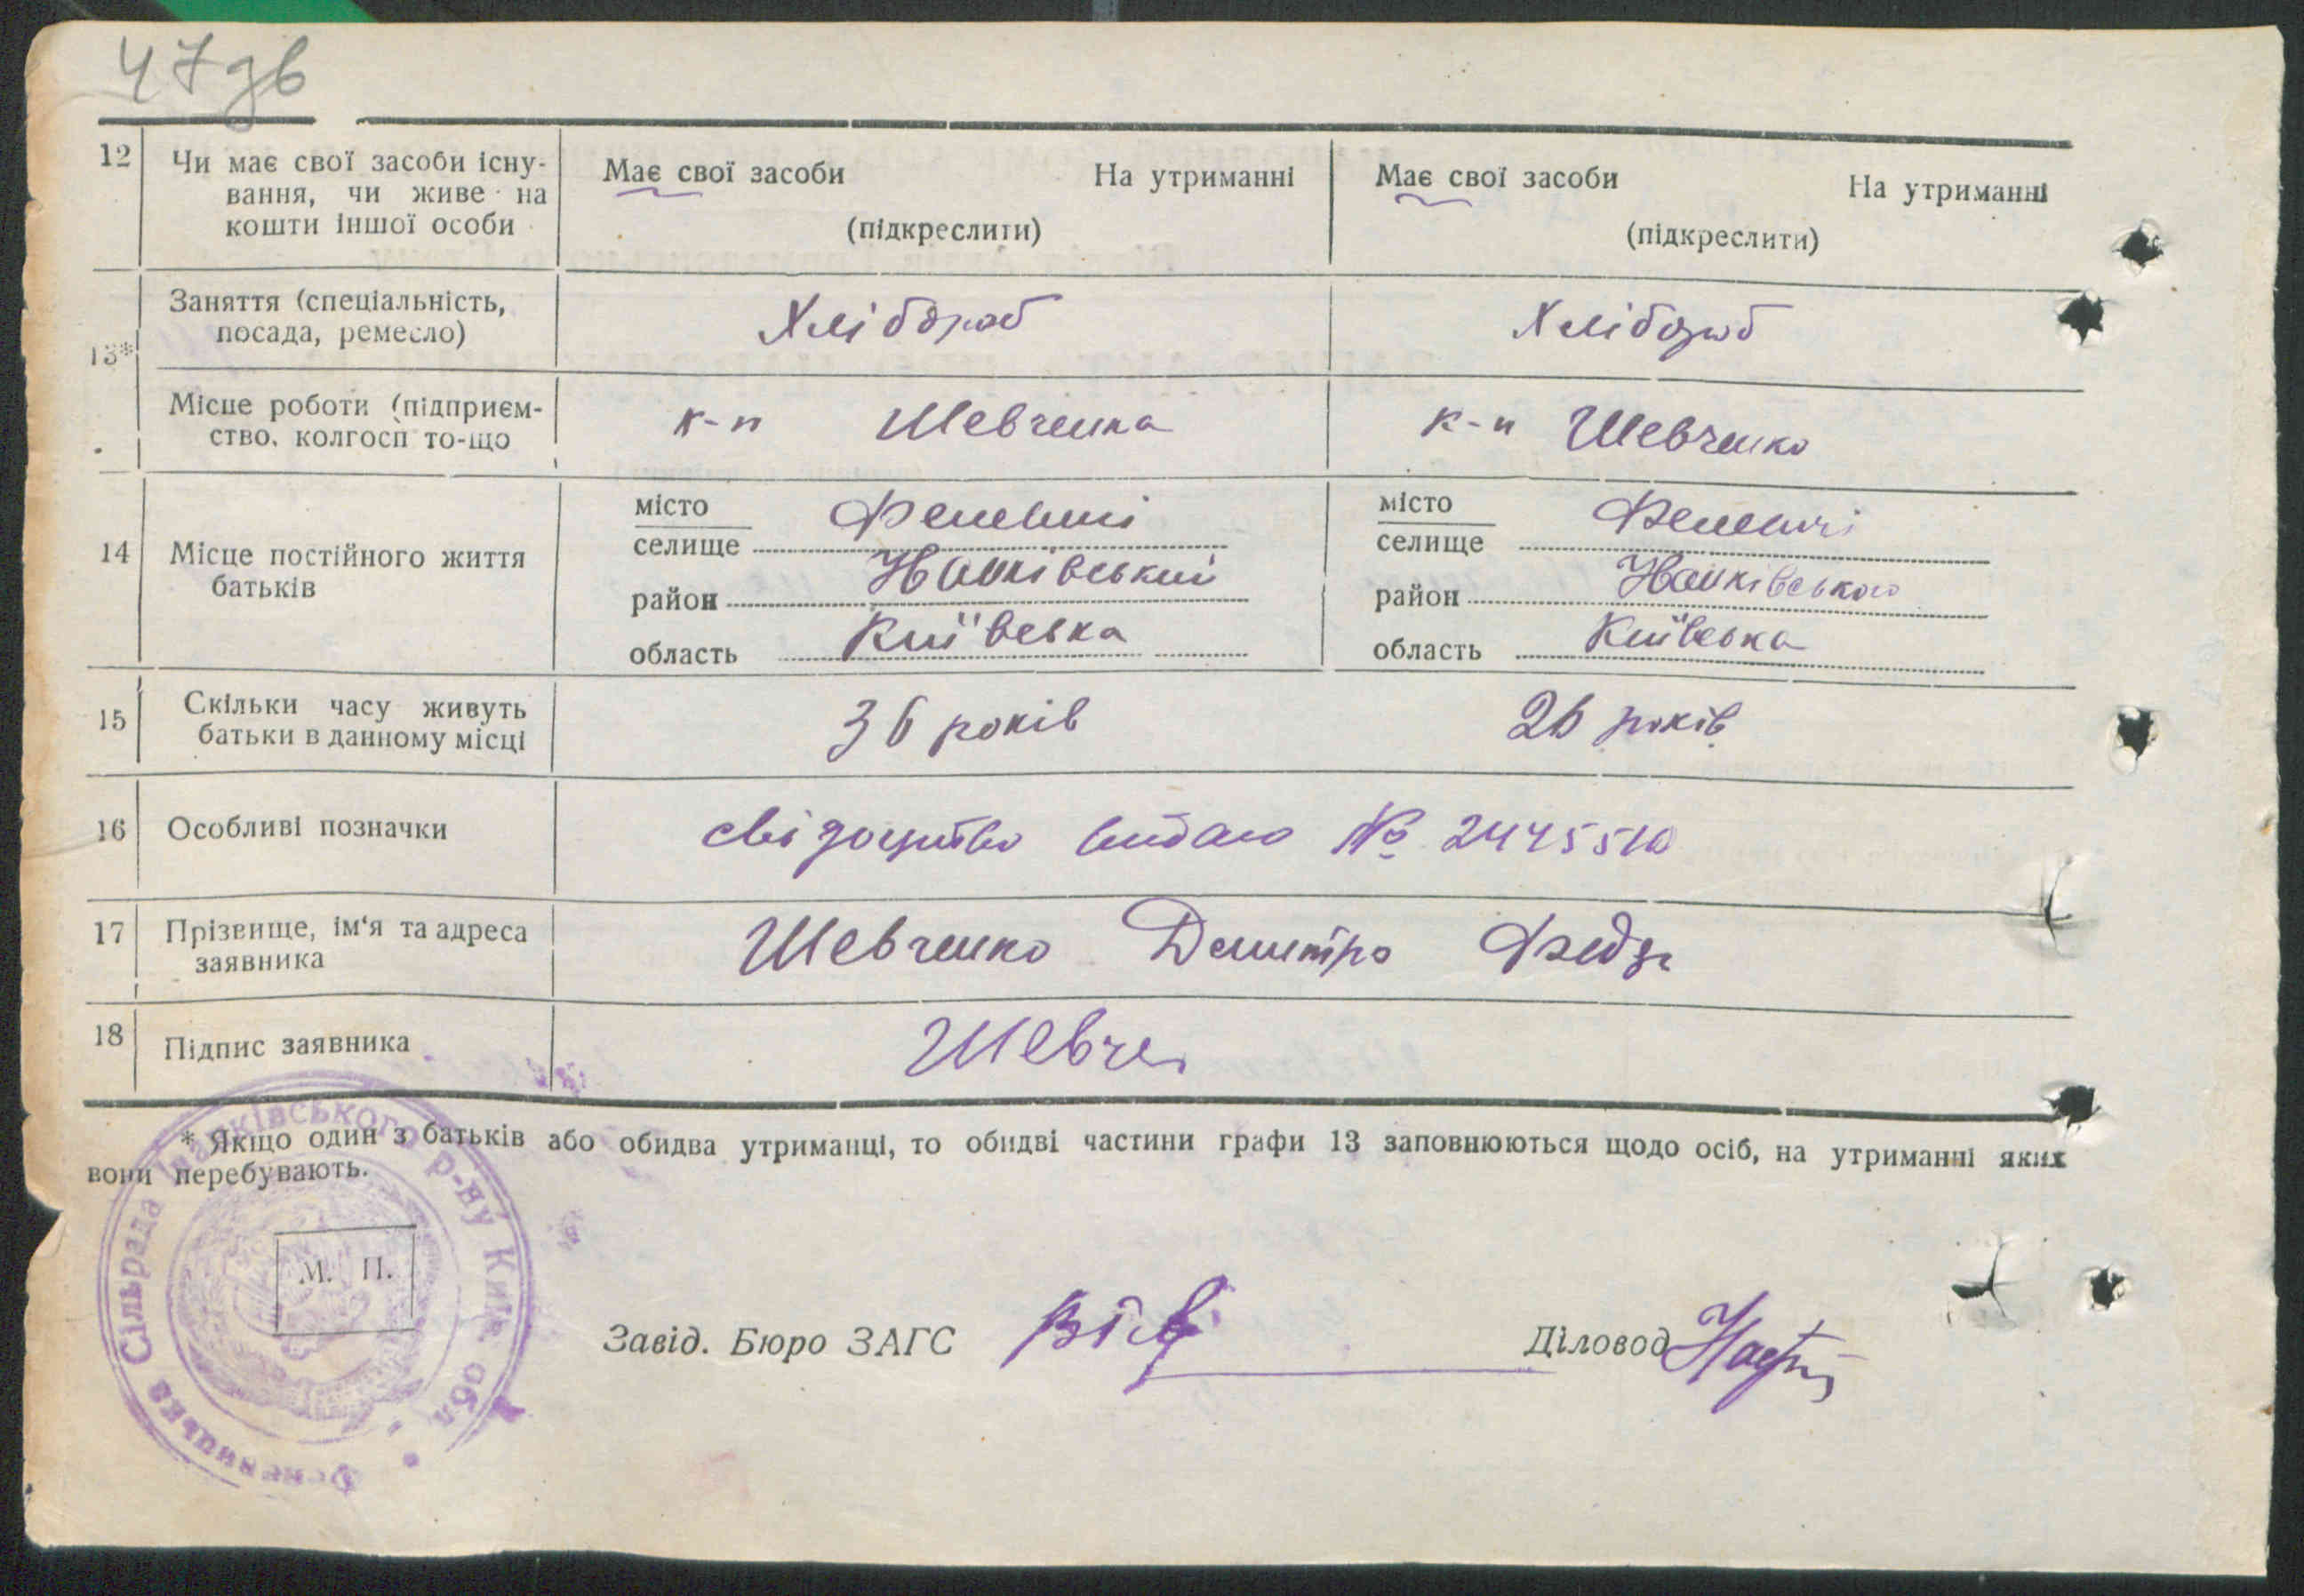 47 зв
12 Чи має свої засоби існу-
вання, чи живе на
кошти іншої особи
Має свої засоби На утриманні
(підкреслити)
Має свої засоби На утриманні
(підкреслити)
13*
Заняття (спеціальність,
посада, ремесло)
Хлібороб
Хлібороб
Місце роботи (підприєм-
ство, колгосп то-що
к-п Шевченка
к-п Шевченко
14 Місце постійного життя
батьків
місто
селище Феневичі
район Іванківський
область Київська
місто
селище Феневичі
район Іванківського
область Київська
15 Скільки часу живуть
батьки в данному місці
36 років
26 років
16 Особливі позначки
свідоцтво видано № 2445510
17 Прізвище, ім'я та адреса
заявника
Шевченко Демитро
18 Підпис заявника
Шевчен
* Якщо один з батьків або обидва утриманці, то обидві частини графи 13 заповнюються щодо осіб, на утриманні яких
вони перебувають.
М. П.
Феневицька Сільрада Іванківського р-ну Київ. обл.
Завід. Бюро ЗАГС
Діловод